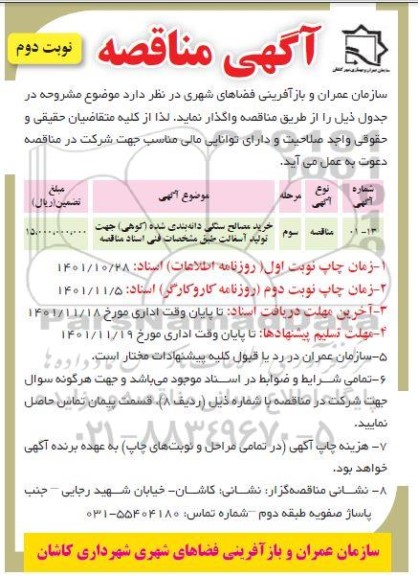 آگهی مناقصه
نوبت دوم
سازمان عمران و بازآفرینی فضاهای شهری در نظر دارد موضوع مشروحه در
جدول ذیل را از طریق مناقصه واگذار نماید. لذا از کلیه متقاضیان حقیقی و
حقوقی واجد صلاحیت و دارای توانایی مالی مناسب جهت شرکت در مناقصه
دعوت به عمل می آید.
شماره آگهی نوع آگهی مرحله موضوع آگهی مبلغ تضمین(ریال)
۱۳-۰۱ مناقصه سوم خرید مصالح سنگی دانه‌بندی شده (کوهی) جهت تولید آسفالت طبق مشخصات فنی اسناد مناقصه ۱۵,۰۰۰,۰۰۰,۰۰۰
۱-زمان چاپ نوبت اول( روزنامه اطلاعات) اسناد: ۱۴۰۱/۱۰/۲۸
۲-زمان چاپ نوبت دوم (روزنامه کاروکارگر) اسناد: ۱۴۰۱/۱۱/۵
۳-آخرین مهلت دریافت اسناد: تا پایان وقت اداری مورخ ۱۴۰۱/۱۱/۱۸
۴-مهلت تسلیم پیشنهادها: تا پایان وقت اداری مورخ ۱۴۰۱/۱۱/۱۹
۵-سازمان عمران در رد یا قبول کلیه پیشنهادات مختار است.
۶-تمامی شرایط و ضوابط در اسناد موجود می‌باشد و جهت هرگونه سوال
جهت شرکت در مناقصه با شماره ذیل (ردیف ۸)، قسمت پیمان تماس حاصل
نمایید.
۷- هزینه چاپ آگهی (در تمامی مراحل و نوبت‌های چاپ) به عهده برنده آگهی
خواهد بود.
۸- نشانی مناقصه‌گزار: نشانی: کاشان- خیابان شهید رجایی – جنب
پاساژ صفویه طبقه دوم –شماره تماس: ۵۵۴۰۴۱۸۰-۰۳۱
سازمان عمران و بازآفرینی فضاهای شهری شهرداری کاشان
۰۲۱-۸۸۳۴۹۶۷۰-۵